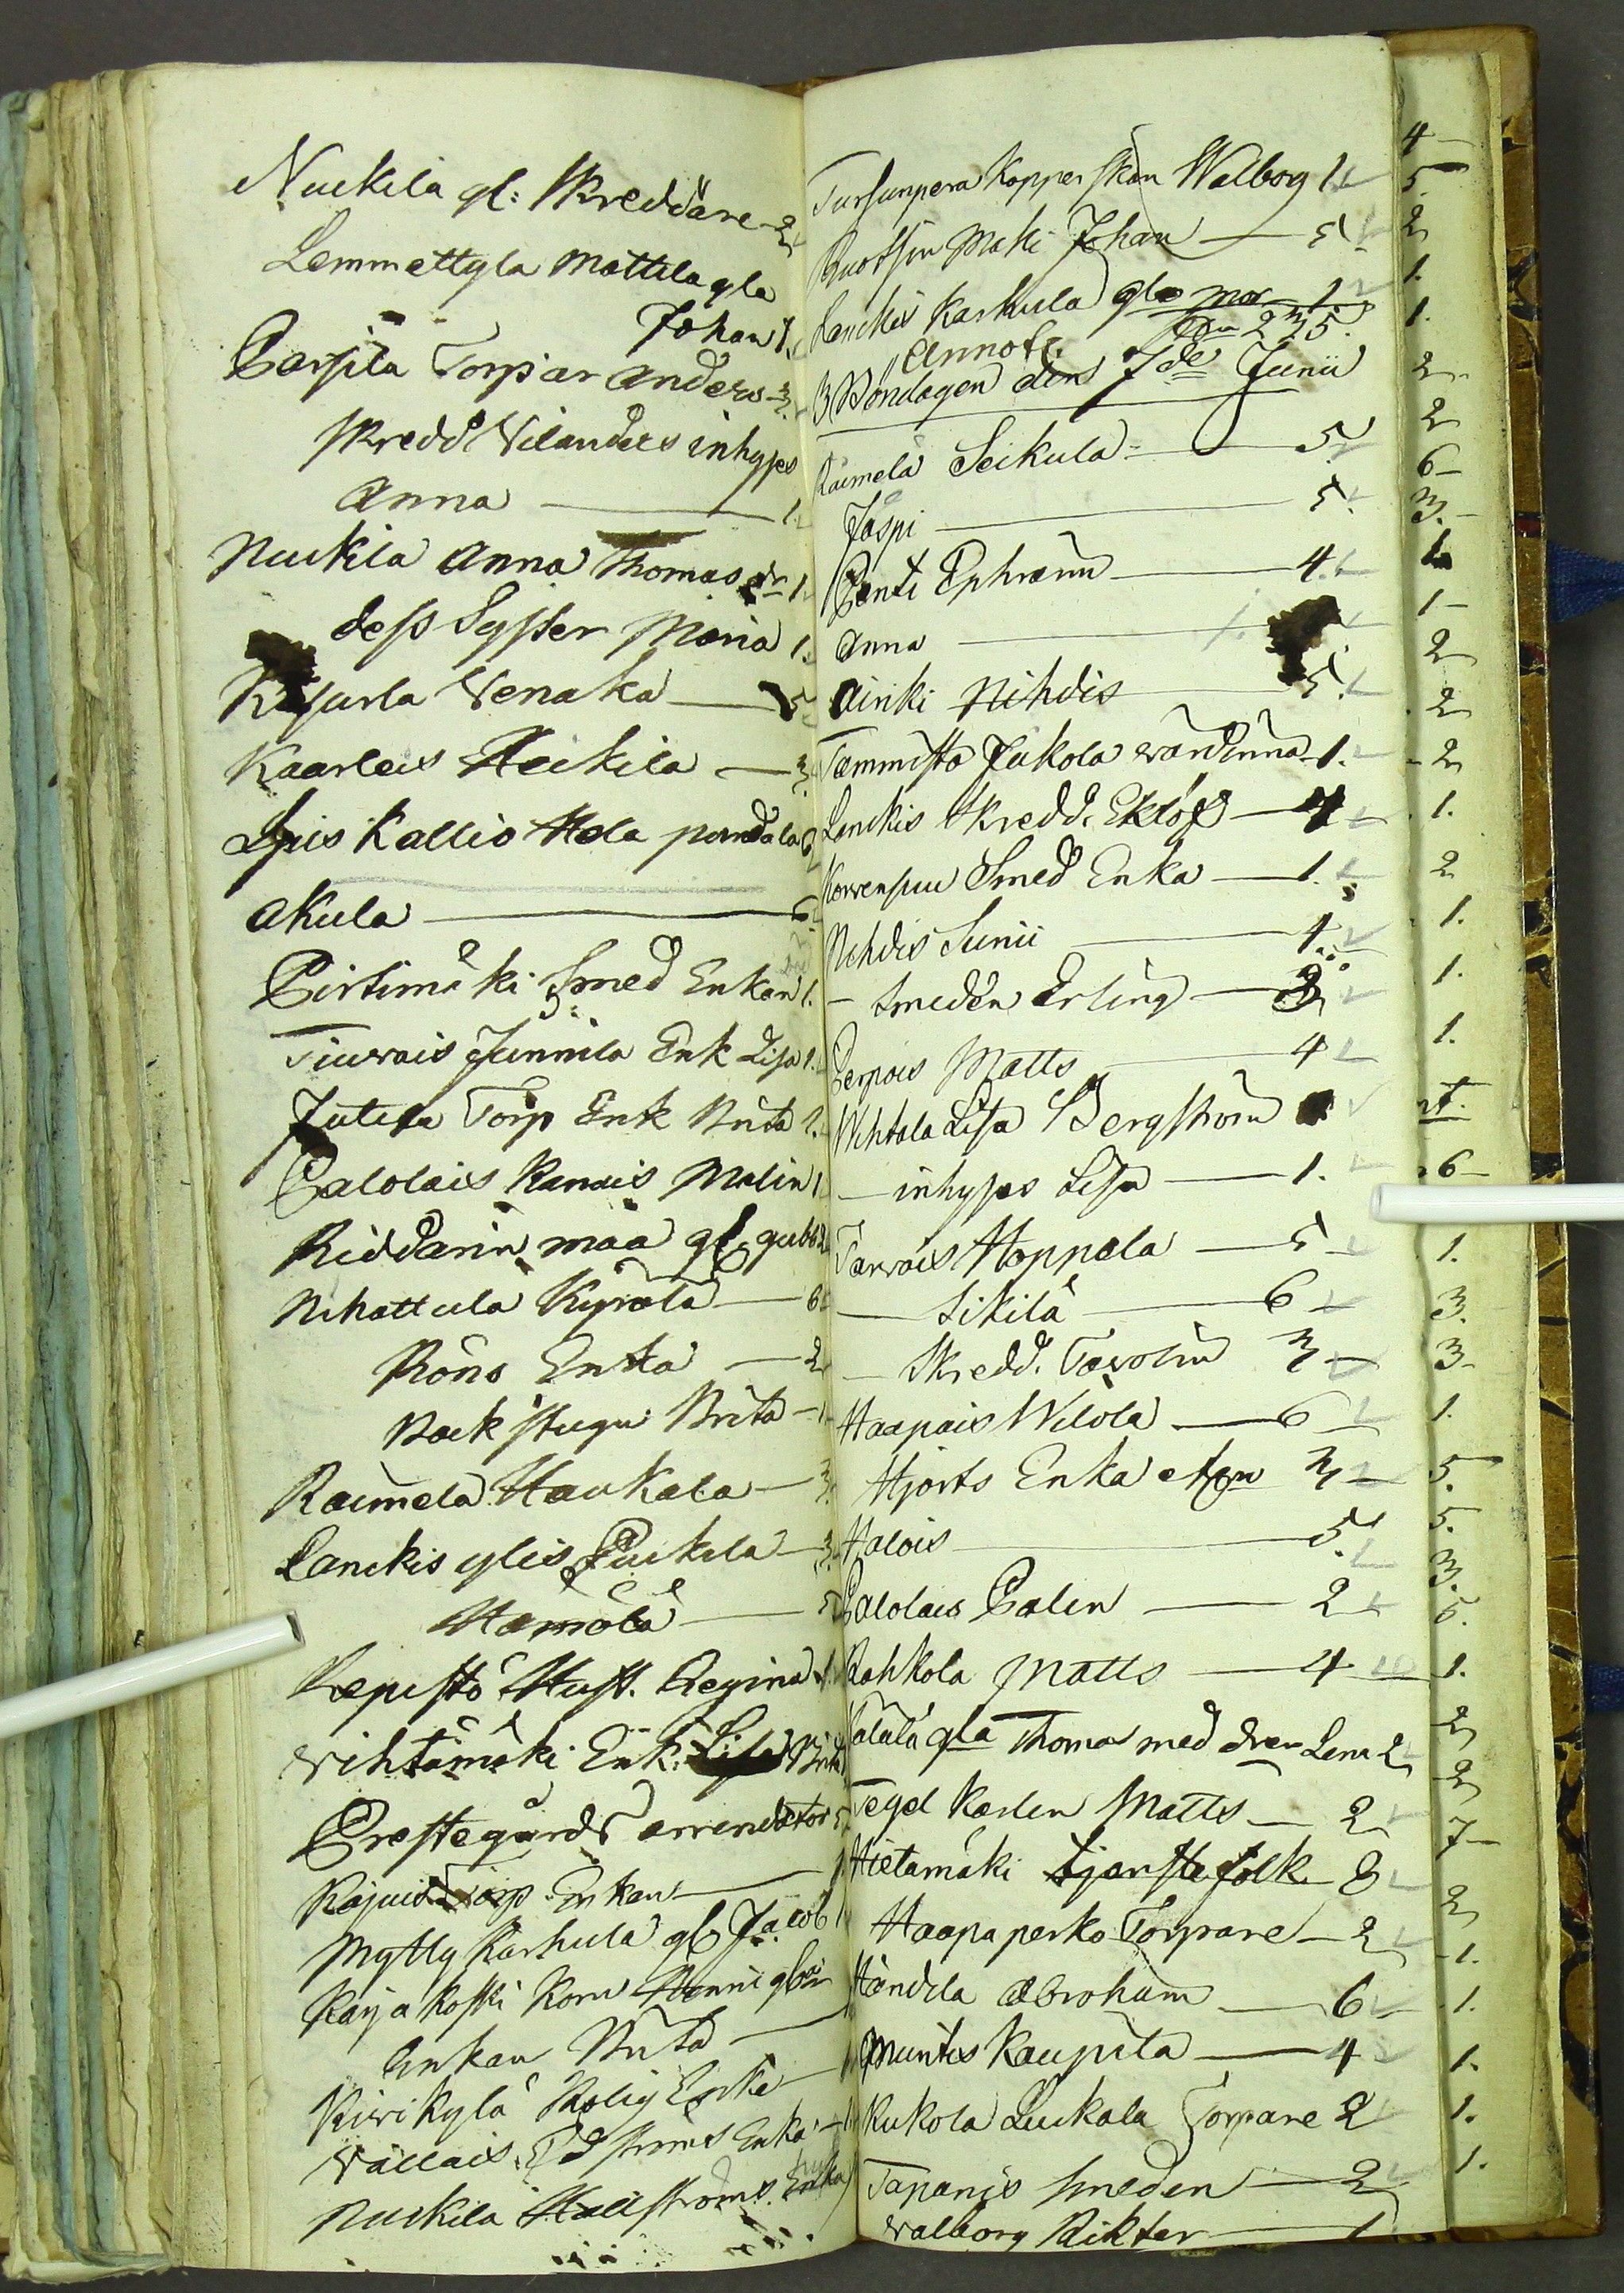 Nuckila gl: Skreddare 2
Lemmettyla Mattila gla
Johan 1.
Parsila Torpar Anders 3.
Skredd Vilanders inhyses
Anna 1.
Nuckila Anna Thomas dr 1.
dess Syster Maria 1.
Venaka 5
Kaarleis Heikila 3.
Kallio Hela 6
Akula 6.
Pirtimäki Smed Enkan 1.
Tiuvais Junnila Enk Lisa 1.
Jutila Torp Enk Brita 1.
Palolais Ranais Malin 1
Riddarin maa gl gubb 2
Nihattula Kyrölä 6
Röns Enka 2
Backstugu Brita 1
Raimela Haukala 3.
Lanckis glis Puckila 3.
Hamölä 5
Lepistö Hust. Regina 1.
Wihtämäki Enk. Brita
Prestegårds arrendator 5
Torp Enkan 1
Mylly Karhula gl Jacob 1
Karjakoski
Enkan Brita
Kivikylä Enka
Vällais Enka 1
Nuckila Hallströms Enka
Walborg 1
Ruotsin Mäki Johan 5
Lanckis Karhula gla mor 1
Annot.
Böndagen dens 7de Junii
Raimela Seikula 5
Jaspi 5.
Penti Ephraim 4.
Anna
Ainki Nihdis 5.
Tammisto Jukola wärdinna 1.
Lanckis Skredd. Eklöf 4
Korvenpuu Smed Enka 1.
Nihdis Sunii 4.
- Smeden Erling 3
Perpois Matts 4
Wihtala Lisa Bergström
- inhyses Lisa 1.
Tarvois Hoppala 5
- Sikilä 6
- Skredd. 3
Haapais Wilola 6
Hjorts Enka 3
Halois 5.
Palolais Palin 2
Rahkola Matts 4
gla Thomas med dren Lena 2
Tegel karlen Matts 2
Hietamäki tjenstefolk 8
Haapaperko Torpare 2
Händila Abraham 6
Muntis Kaupila 4
Kukola Luckala Torpare 2
Tapanis Smeden 2
Walborg Rikter 1
4
5.
2
1.
1.
2
2
6
3.
1
1
2
2
2
1.
2
1.
1.
1.
6
1.
3.
3
1.
5.
5.
3.
5.
1.
2
2
7
2
1.
1.
1.
1.
1.